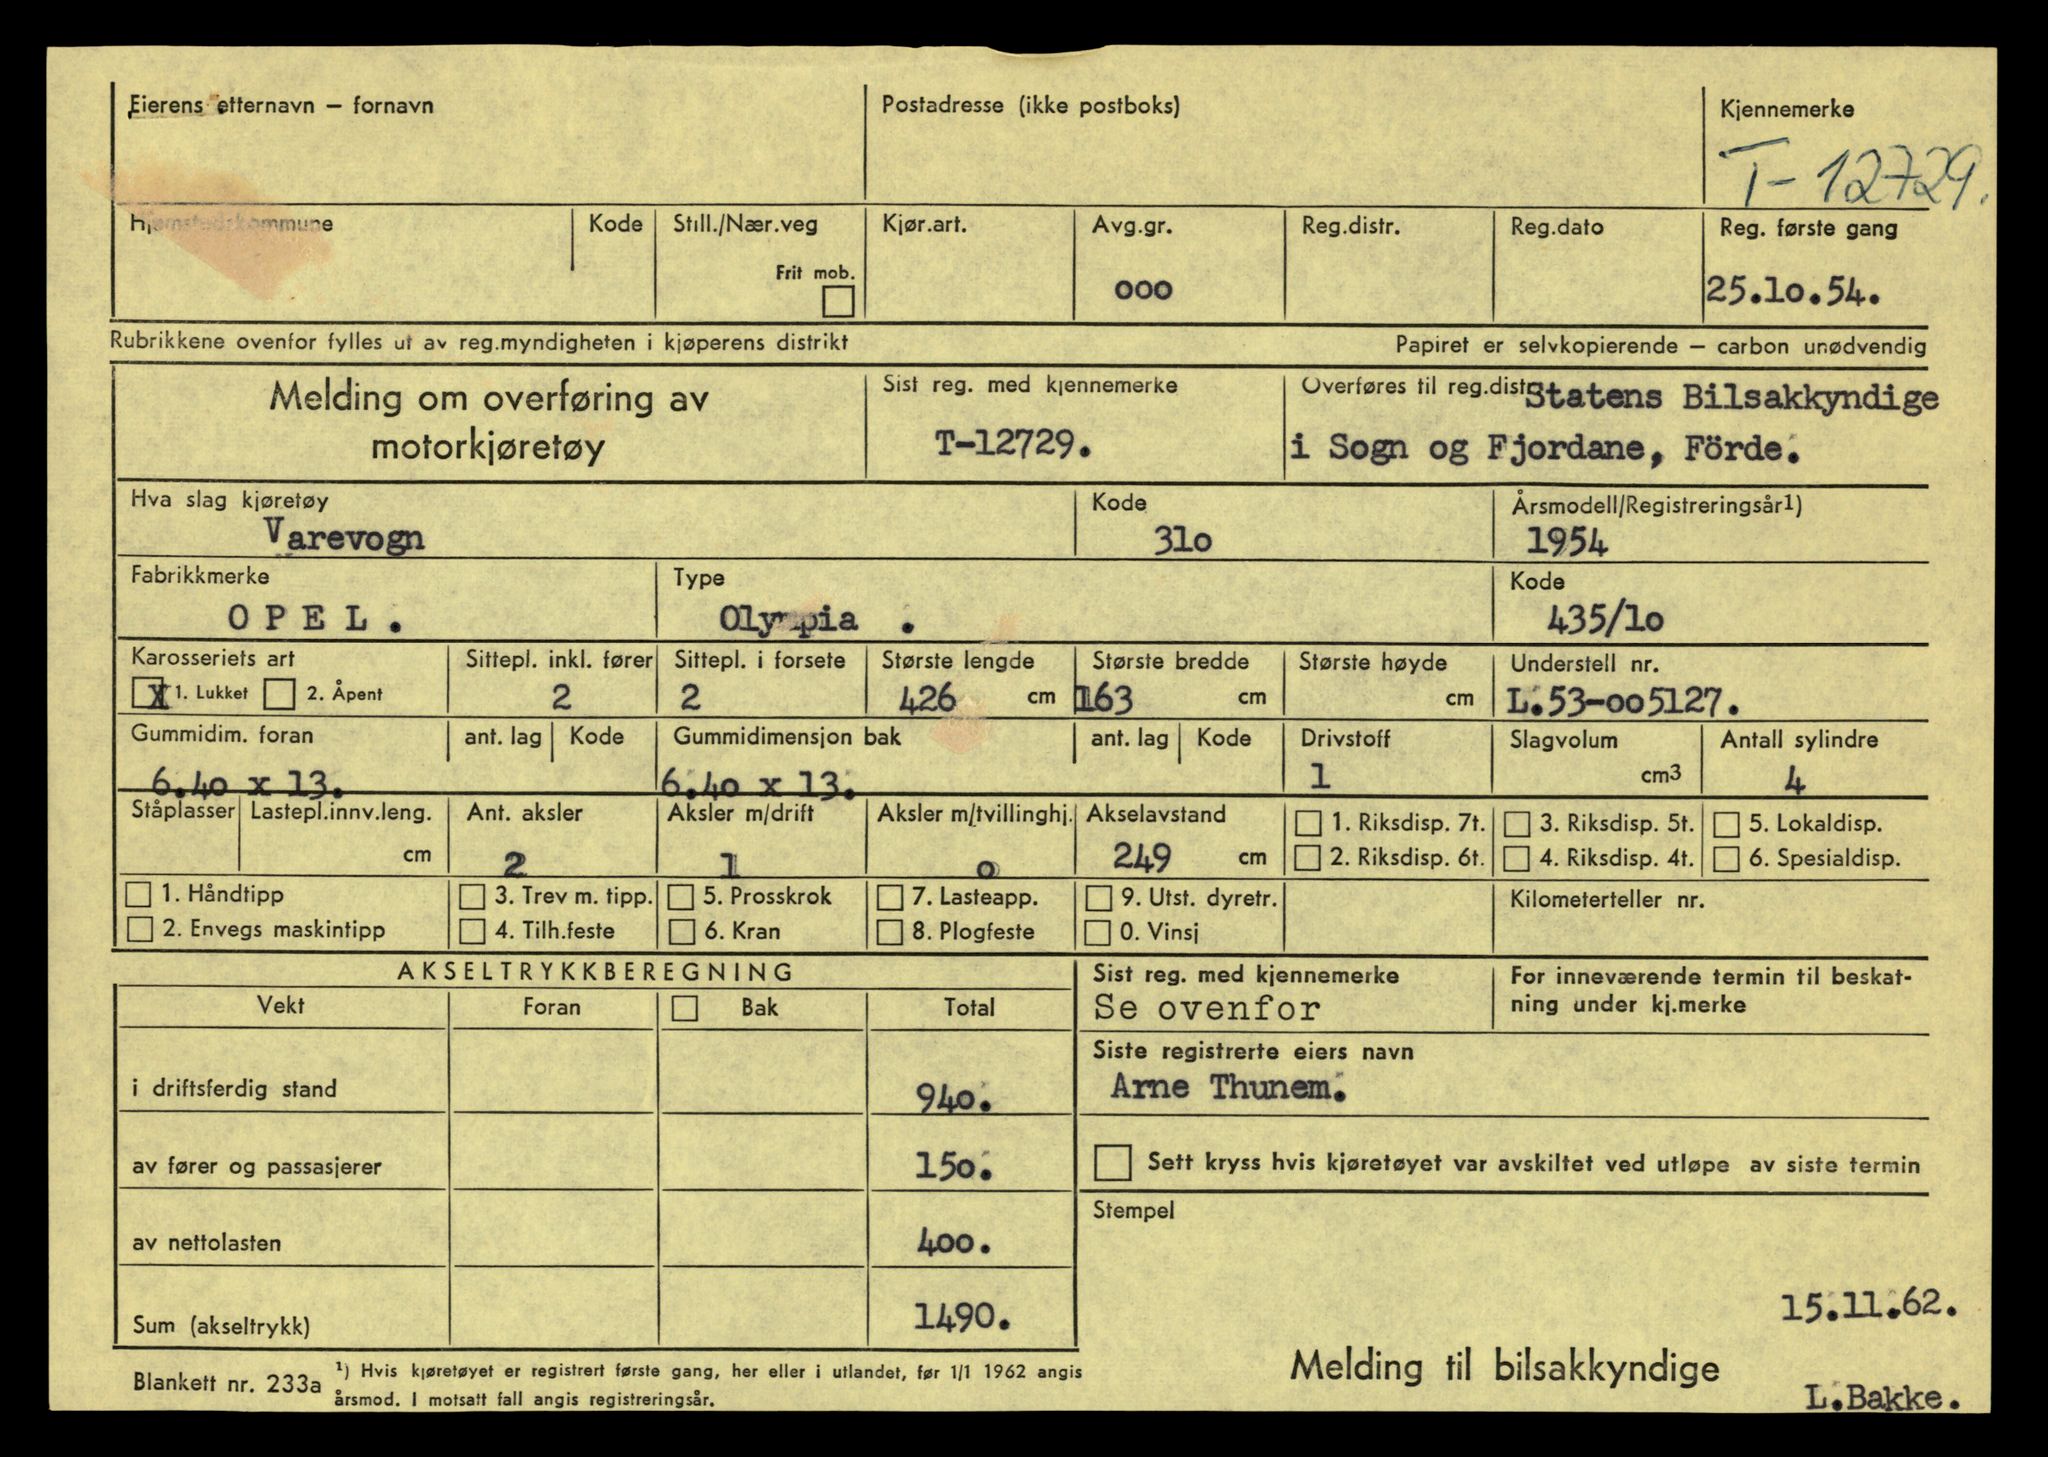 Eierens etternavn – fornavn
Postadresse (ikke postboks)
Kjennemerke
T-12729.
Hjemstedskommune
Kode
Still./Nær.veg
Frit mob.
Kjør.art.
Avg.gr.
ooo
Reg.distr.
Reg.dato
Reg. første gang
25.1o.54.
Rubrikkene ovenfor fylles ut av reg.myndigheten i kjøperens distrikt
Papiret er selvkopierende – carbon unødvendig
Melding om overføring av
motorkjøretøy
Sist reg. med kjennemerke
T-12729.
Overføres til reg.distr
Statens Bilsakkyndige
i Sogn og Fjordane, Förde.
Hva slag kjøretøy
Varevogn
Kode
31o
Årsmodell/Registreringsår1)
1954
Fabrikkmerke
O P E L .
Type
Olympia .
Kode
435/1o
Karosseriets art
X 1. Lukket 2. Åpent
Sittepl. inkl. fører
2
Sittepl. i forsete
2
Største lengde
426 cm
Største bredde
163 cm
Største høyde
cm
Understell nr.
L.53-oo5127.
Gummidim. foran
6.4o x 13.
ant. lag
Kode
Gummidimensjon bak
6.4o x 13.
ant. lag
Kode
Drivstoff
1
Slagvolum
cm3
Antall sylindre
4
Ståplasser
Lastepl.innv.leng.
cm
Ant. aksler
2
Aksler m/drift
1
Aksler m/tvillinghj.
o
Akselavstand
249 cm
1. Riksdisp. 7t.
2. Riksdisp. 6t.
3. Riksdisp. 5t.
4. Riksdisp. 4t.
5. Lokaldisp.
6. Spesialdisp.
1. Håndtipp
2. Envegs maskintipp
3. Trev m. tipp.
4. Tilh.feste
5. Prosskrok
6. Kran
7. Lasteapp.
8. Plogfeste
9. Utst. dyretr.
0. Vinsj
Kilometerteller nr.
AKSELTRYKKBEREGNING
Vekt
Foran
Bak
Total
i driftsferdig stand
94o.
av fører og passasjerer
15o.
av nettolasten
4oo.
Sum (akseltrykk)
1490.
Sist reg. med kjennemerke
Se ovenfor
For inneværende termin til beskat-
ning under kj.merke
Siste registrerte eiers navn
Arne Thunem.
Sett kryss hvis kjøretøyet var avskiltet ved utløpe av siste termin
Stempel
15.11.62.
Melding til bilsakkyndige
L.Bakke.
Blankett nr. 233a
1) Hvis kjøretøyet er registrert første gang, her eller i utlandet, før 1/1 1962 angis
årsmod. I motsatt fall angis registreringsår.